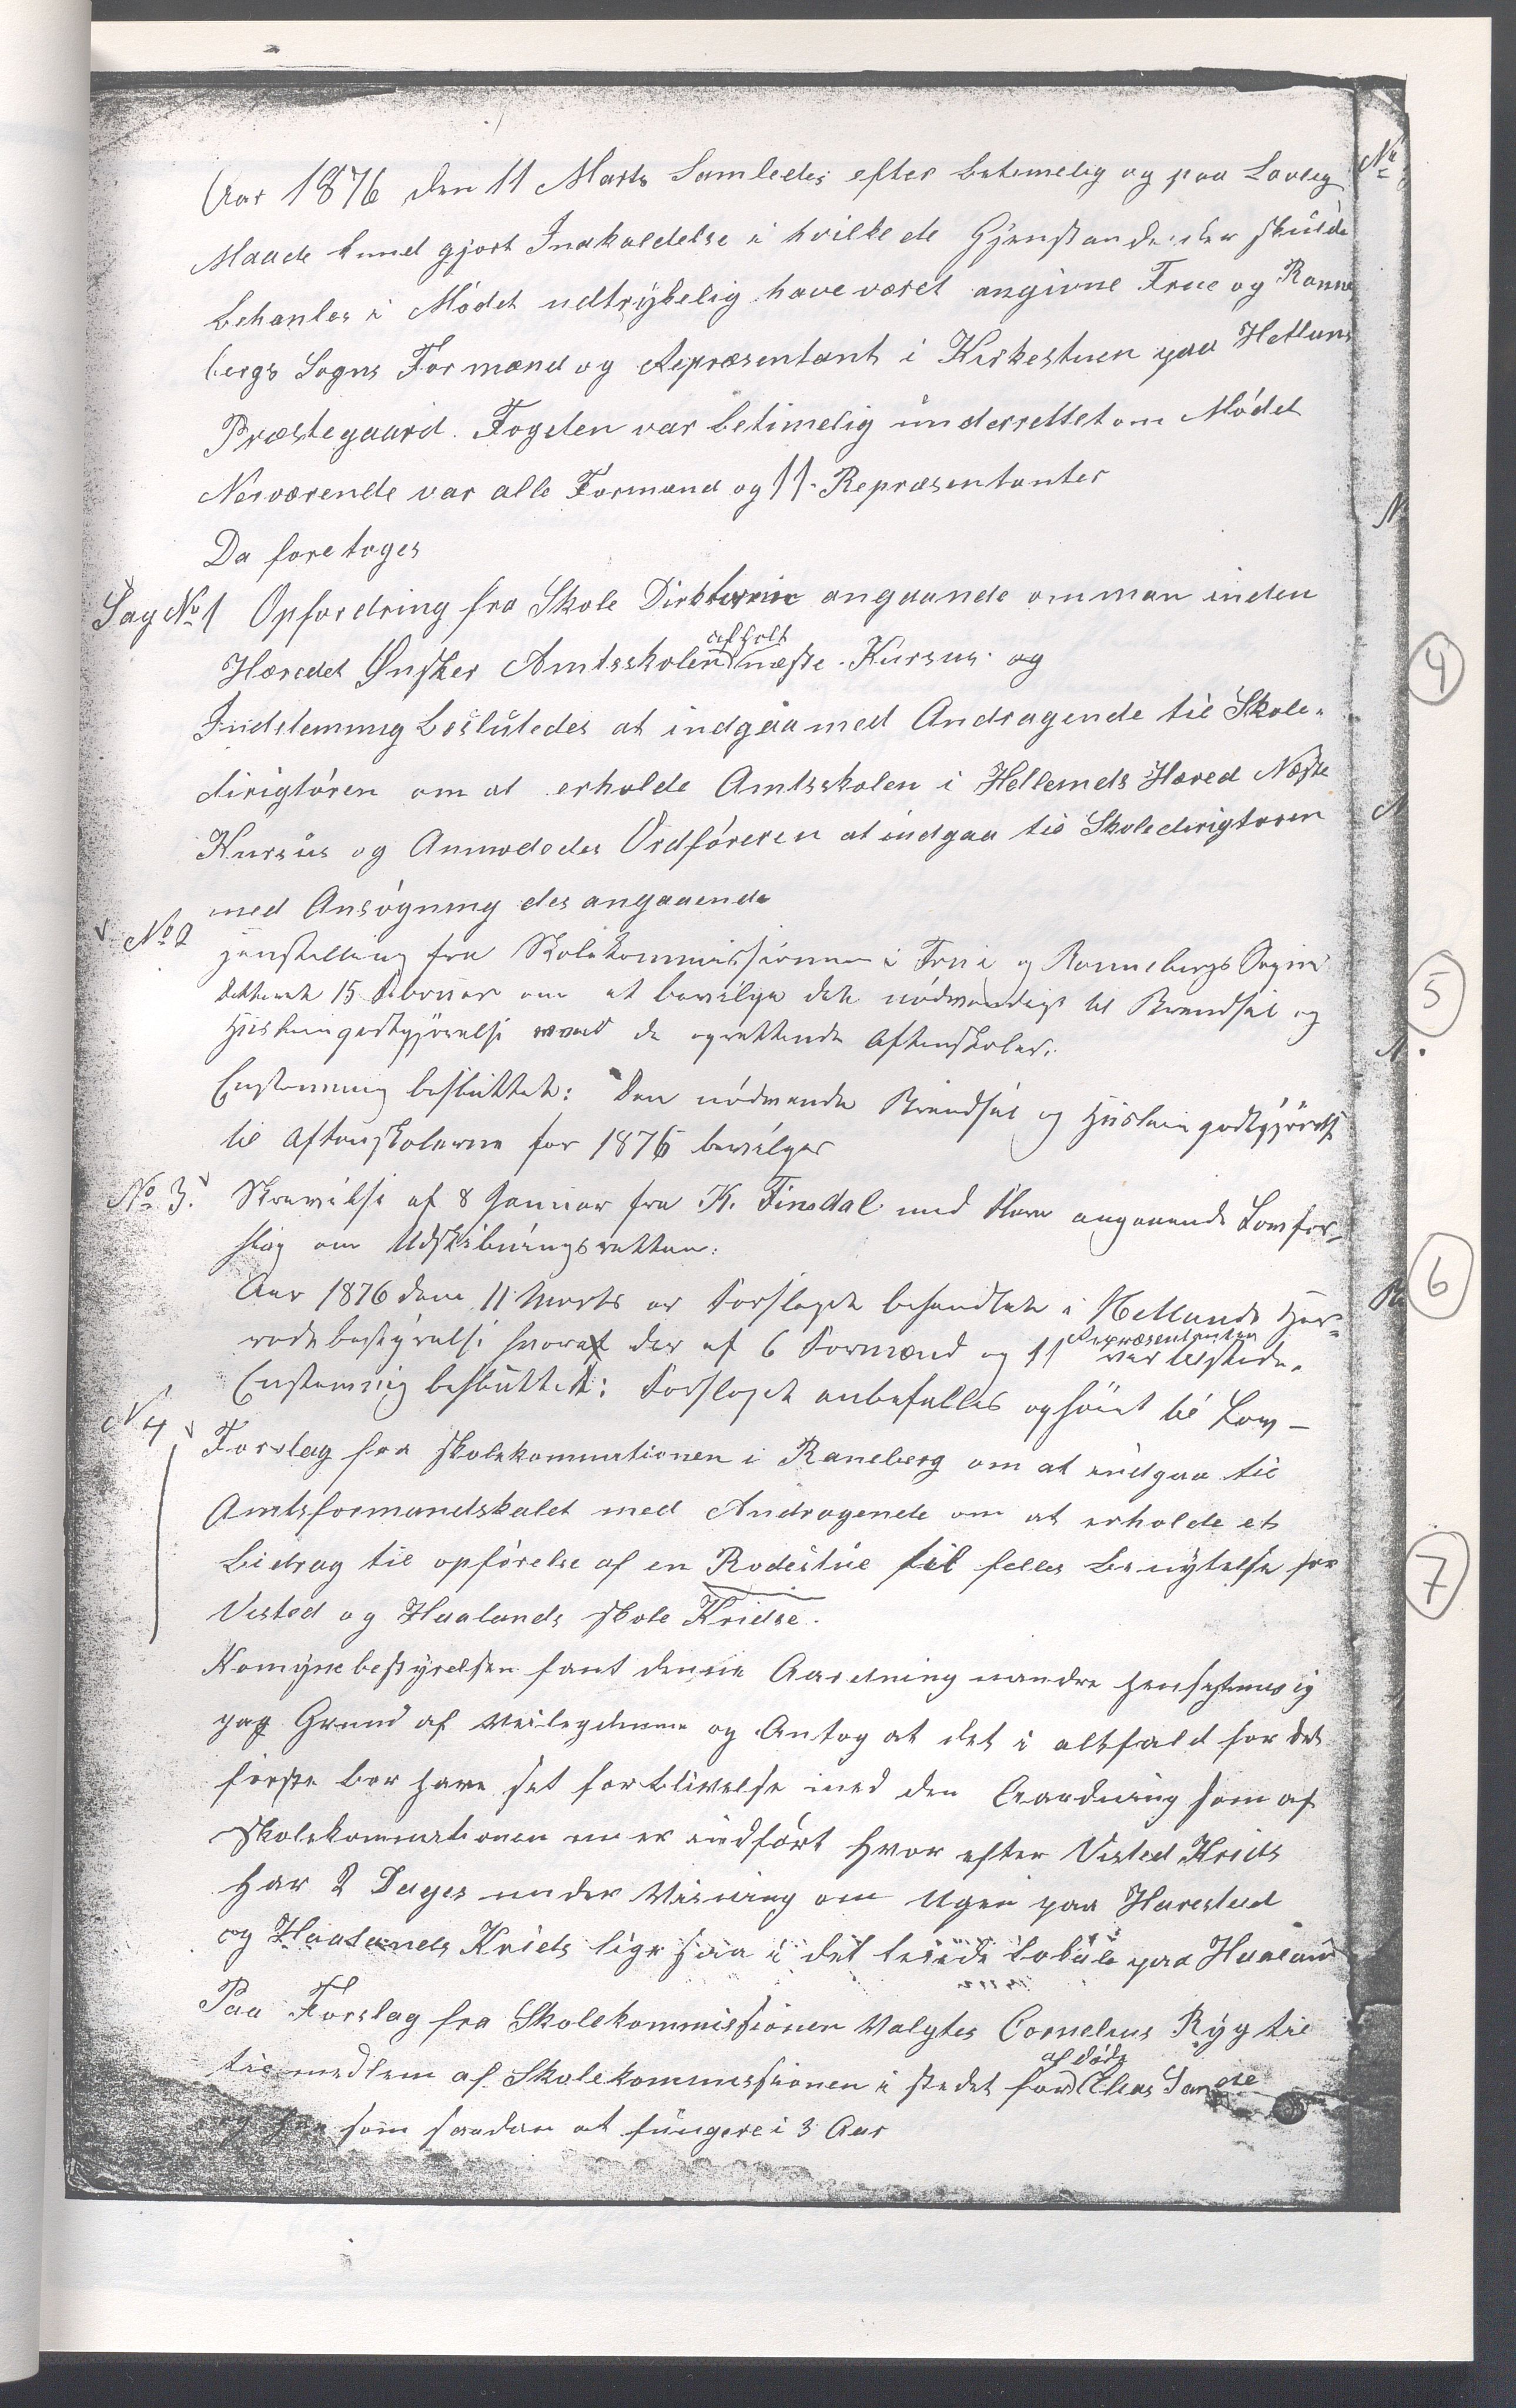 Aar 1876 den 11 Marts Samledes efter betimelig og paa Lovlig
Maade kund gjort Indkaldelse i hvilke de Gjenstande der skulde
behanles i Mödet udtrykelig have været angivne Frue og Ranne
bergs Sogns Formænd og Repræsentant i Kirkestuen paa Hetlans
Præstegaard. Fogden var betimelig underrettet om Mödet
Nerværende var alle Formænd og 11 Repræsentanter
Da foretoges
Sag No 1 Opfordring fra Skole angaande om man inden
afholt
Hæredet Ønsker Amtsskolen næste Kursus og
Indstemmig beslutedes at indgaa med Andragende til Skole-
dirigtören om at erholde Amtsskolen i Hetlands Hæred Næste
Kursus og Anmodedes Ordföreren at indgaa til Skoledirigtoren
med Ansögning des angaaende
No 2 Henstilling fra Skolekommissionen i Frue og Rannebergs Sogne
datteret 15 Februar om at bevilge det nödvendige til Brændsel og
Huslein godtgjörelse ved de oprettende Aftenskoler.
Enstemmig besluttet: Den nödvende Brændsel og Huslein godtgjörelse
til Aftenskolerne for 1876 bevilges
No 3. Skrivelse af 8 Januar fra K. Finsdal med Flere angaaende Lovfor-
slag om Udskibningsretten.
Aar 1876 den 11 Marts er Forslaget behandlet i Hetlands Her-
redsbestyrelse hvoraf der af 6 Formænd og 11 Repræsentanter
var tilstede.
Enstemmig besluttet: Forslaget anbefalles ophöiet til Lov –
N 4 Forslag fra Skolekommitionen i Raneberg om at indgaa til
Amtsformandskabet med Andragende om at erholde et
Bidrag til opförelse af en Rodestue til felles Benytelse for
Visted og Haalands skole Kridse.
Komynebestyrelsen fant denne Aardning mindre hensigtmesig
paa Grund af Veilegdene og Antog at det i altfald for det
förste bör have set forblivelse med den Aardning som af
Skolekommitionen nu er indfört hvor efter Visted Krids
har 2 Dages under Visning om Ugen paa Harestad
og Haalands Krids lige saa i det leiede Lokale paa Haaland
Paa Forslag fra Skolekommissionen Valgtes Cornelius Ryg til
af döde
til medlem af Skolekommissionen i stedet for Elias Sande
og han som saadan at fungere i 3 Aar
4
5
6
7